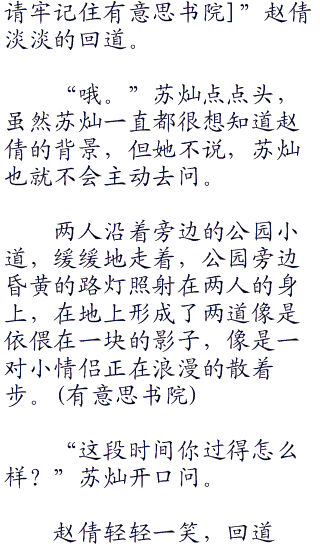 请牢记住有意思书院]”赵倩
淡淡的回道。
“哦。”苏灿点点头，
虽然苏灿一直都很想知道赵
倩的背景，但她不说，苏灿
也就不会主动去问。
两人沿着旁边的公园小
道，缓缓地走着，公园旁边
昏黄的路灯照射在两人的身
上，在地上形成了两道像是
依偎在一块的影子，像是一
对小情侣正在浪漫的散着
步。(有意思书院)
“这段时间你过得怎么
样？”苏灿开口问。
赵倩轻轻一笑，回道